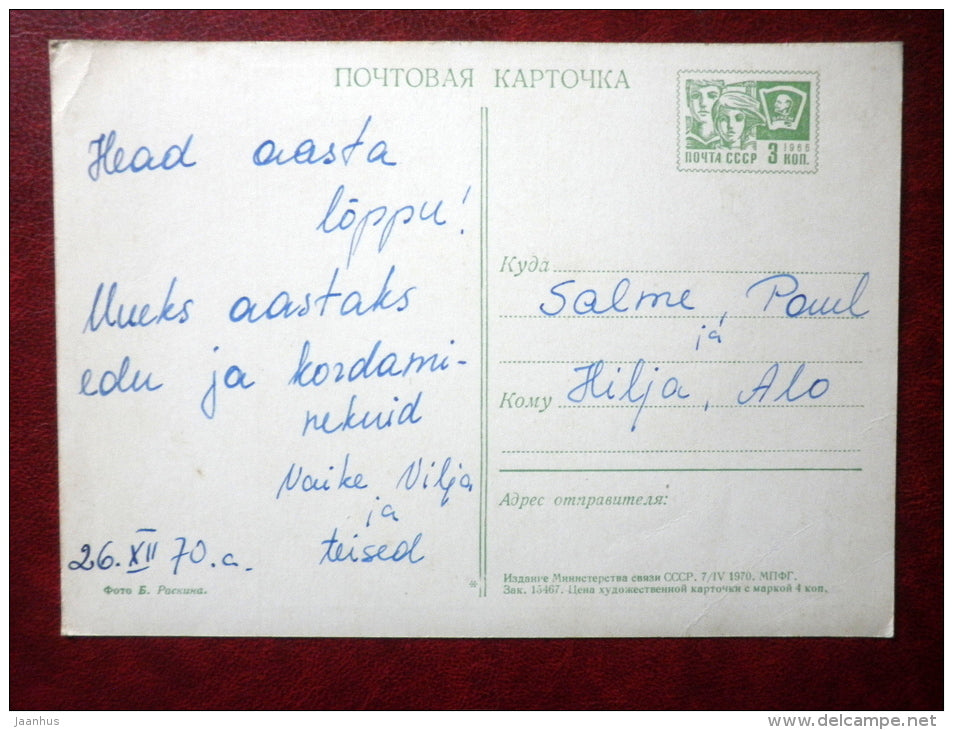 ПОЧТОВАЯ КАРТОЧКА
ПОЧТА СССР 3 КОП. 1966
Head aasta
lõppu!
Uueks aastaks
edu ja kordami-
nekuid
Vaike Vilja
ja
teised
26. XII 70. a.
Фото Б. Раскина.
Куда
Salme, Paul
ja
Кому Hilja, Alo
Адрес отправителя:
Издание Министерства связи СССР. 7/IV 1970. МПФГ.
Зак. 15467. Цена художественной карточки с маркой 4 коп.
jaanhus
www.delcampe.net